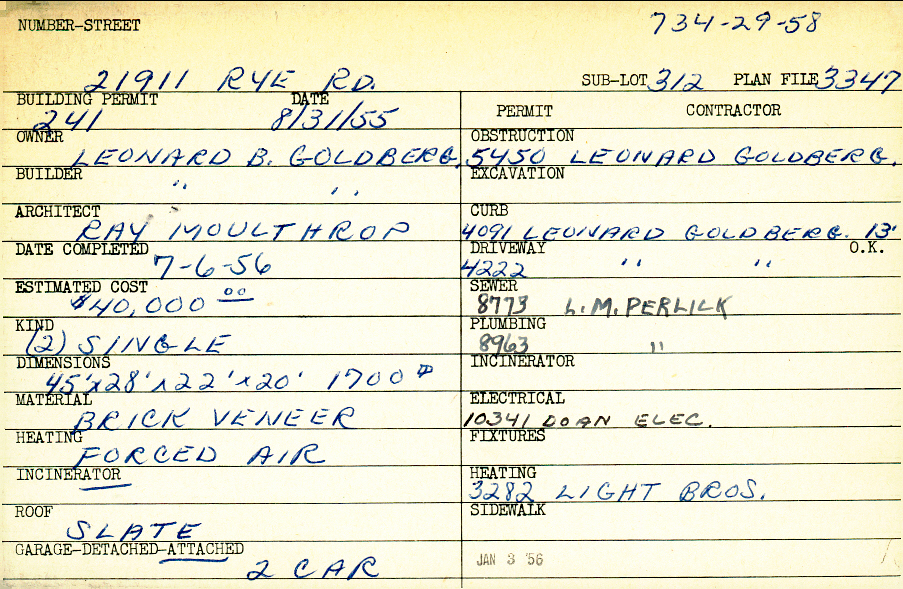 NUMBER-STREET 734-29-58
21911 RYE RD. SUB-LOT 312 PLAN FILE 3347
BUILDING PERMIT DATE PERMIT CONTRACTOR
241 8/31/55
OWNER OBSTRUCTION
LEONARD B. GOLDBERG. 5450 LEONARD GOLDBERG.
BUILDER EXCAVATION
" " "
ARCHITECT CURB
RAY MOULTHROP 4091 LEONARD GOLDBERG. 13'
DATE COMPLETED DRIVEWAY O.K.
7-6-56 4222 " "
ESTIMATED COST SEWER
$40,000 00 8773 L.M. PERLICK
KIND PLUMBING
(2) SINGLE 8963 "
DIMENSIONS INCINERATOR
45'x28'x22'x20' 1700
MATERIAL ELECTRICAL
BRICK VENEER 10341 DOAN ELEC.
HEATING FIXTURES
FORCED AIR
INCINERATOR HEATING
3282 LIGHT BROS.
ROOF SIDEWALK
SLATE
GARAGE-DETACHED-ATTACHED JAN 3 '56
2 CAR